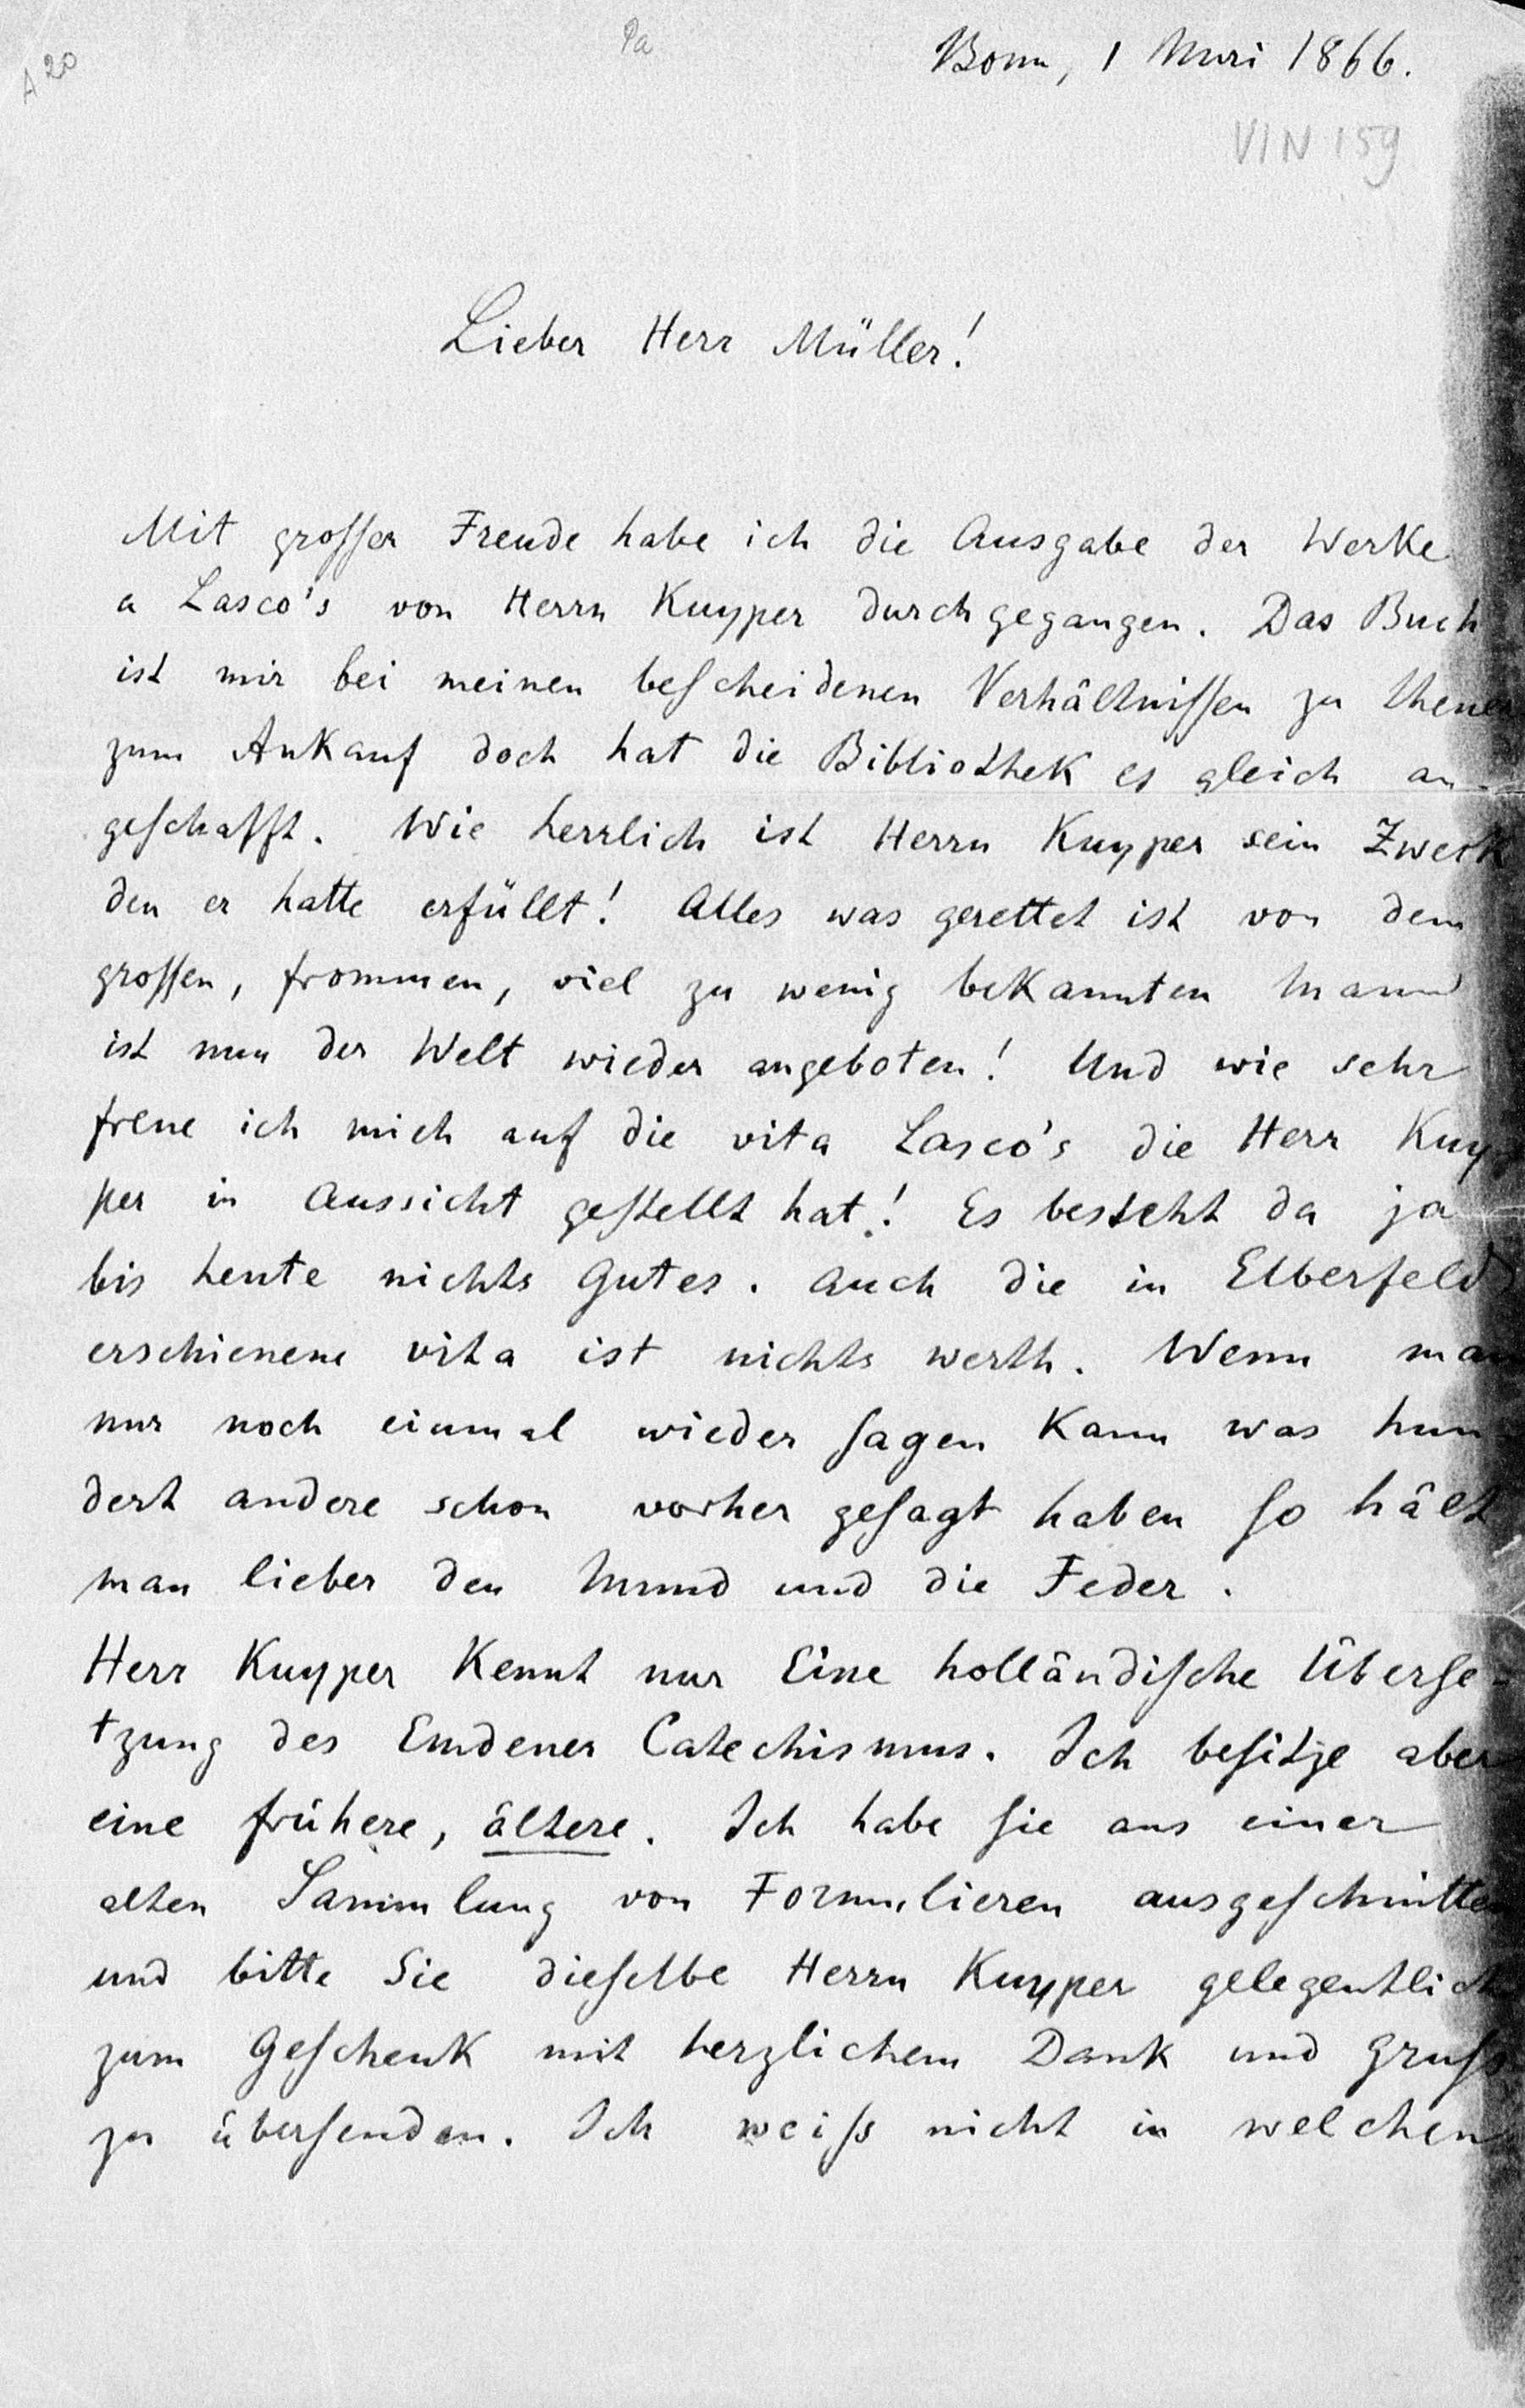 A 20
Pa
Bonn, 1 Mai 1866.
VIN 159
Lieber Herr Müller!
Mit grosser Freude habe ich die Ausgabe der Werke
a Lasco's von Herrn Kuyper durchgegangen. Das Buch
ist mir bei meinen bescheidenen Verhältnissen zu theuer
zum Ankauf doch hat die Bibliothek es gleich an-
geschafft. Wie herrlich ist Herrn Kuyper sein Zweck
den er hatte erfüllt! Alles was gerettet ist von dem
grossen, frommen, viel zu wenig bekannten Mann
ist nun der Welt wieder angeboten! Und wie sehr
freue ich mich auf die vita Lasco's die Herr Kuy-
per in Aussicht gestellt hat! Es besteht da ja
bis heute nichts Gutes. Auch die in Elberfeld
erschienene vita ist nichts werth. Wenn man
nur noch einmal wieder sagen kann was hun-
dert andere schon vorher gesagt haben so hält
man lieber den Mund und die Feder.
Herr Kuyper kennt nur Eine holländische Überse-
tzung des Emdener Catechismus. Ich besitze aber
eine frühere, ältere. Ich habe sie aus einer
alten Sammlung von Formulieren ausgeschnitten
und bitte Sie dieselbe Herrn Kuyper gelegentlich
zum Geschenk mit herzlichem Dank und Gruss
zu übersenden. Ich weiss nicht in welchen